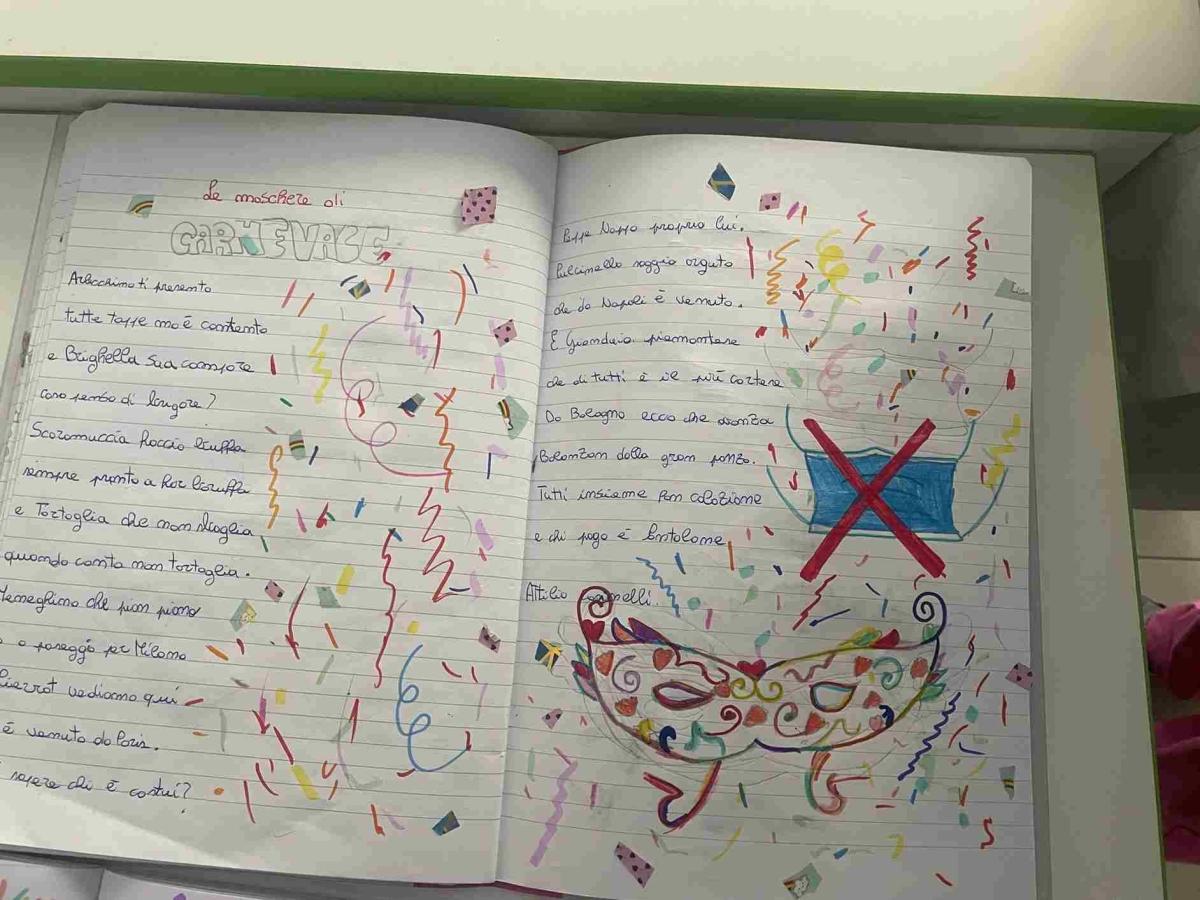 Le maschere di
CARNEVALE
Arlecchino ti presento
tutte toppe ma è contento
e Brighella sua compare
caso pensa di
Scaramuccia Roccia
sempre pronto a far
e Tartaglia che non sbaglia
quando canta non tartaglia.
Meneghino che pian piano
a passeggio per Milano
Pierrot vediamo qui
è venuto da Paris.
sapere chi è costui?
Peppe Nappa proprio lui.
Pulcinella saggio arguto
che da Napoli è venuto.
E Gianduia piemontese
che di tutti è il più cortese
Da Bologna ecco che avanza
Balanzon dalla gran panza.
Tutti insieme fan colazione
e chi paga è Pantalone
Attilio